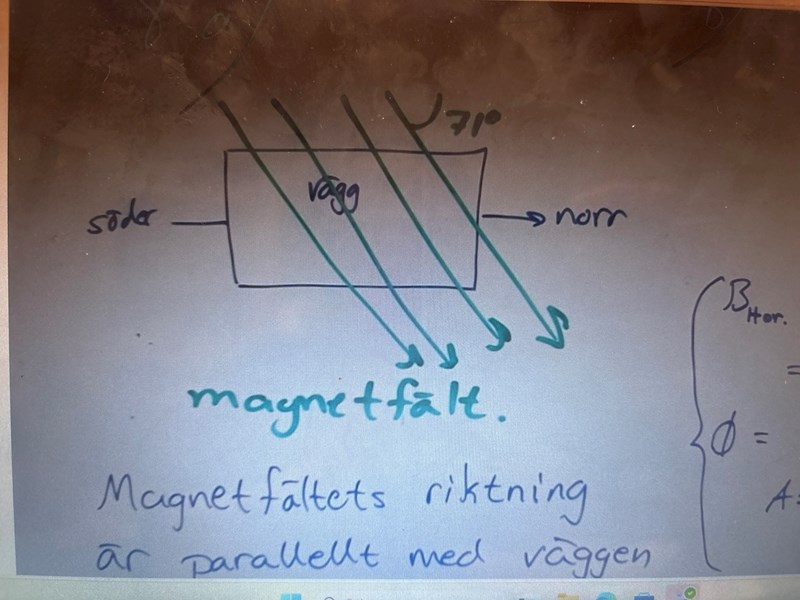 71°
vägg
söder
norr
magnetfält.
Magnetfältets riktning
är parallellt med väggen
B Hor.
=
Φ =
A=